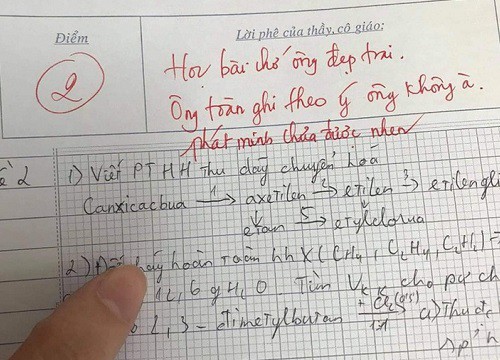 Điểm
Lời phê của thầy, cô giáo:
2
Học bài chớ ông đẹp trai.
Ông toàn ghi theo ý ông không à.
phát minh chưa được nhen
2
1) Viết PTHH thu dãy chuyển hoá
Canxicacbua 1 axetilen 2 etilen 3 etilengli
etan 5 etylclorua
2) hoàn toàn hh X (CH4, C2H4,
6 g H2O Tìm V cho pứ ch
2,3 - đimetylbutan + Cl2 (as) 1:1 a) Thuốc